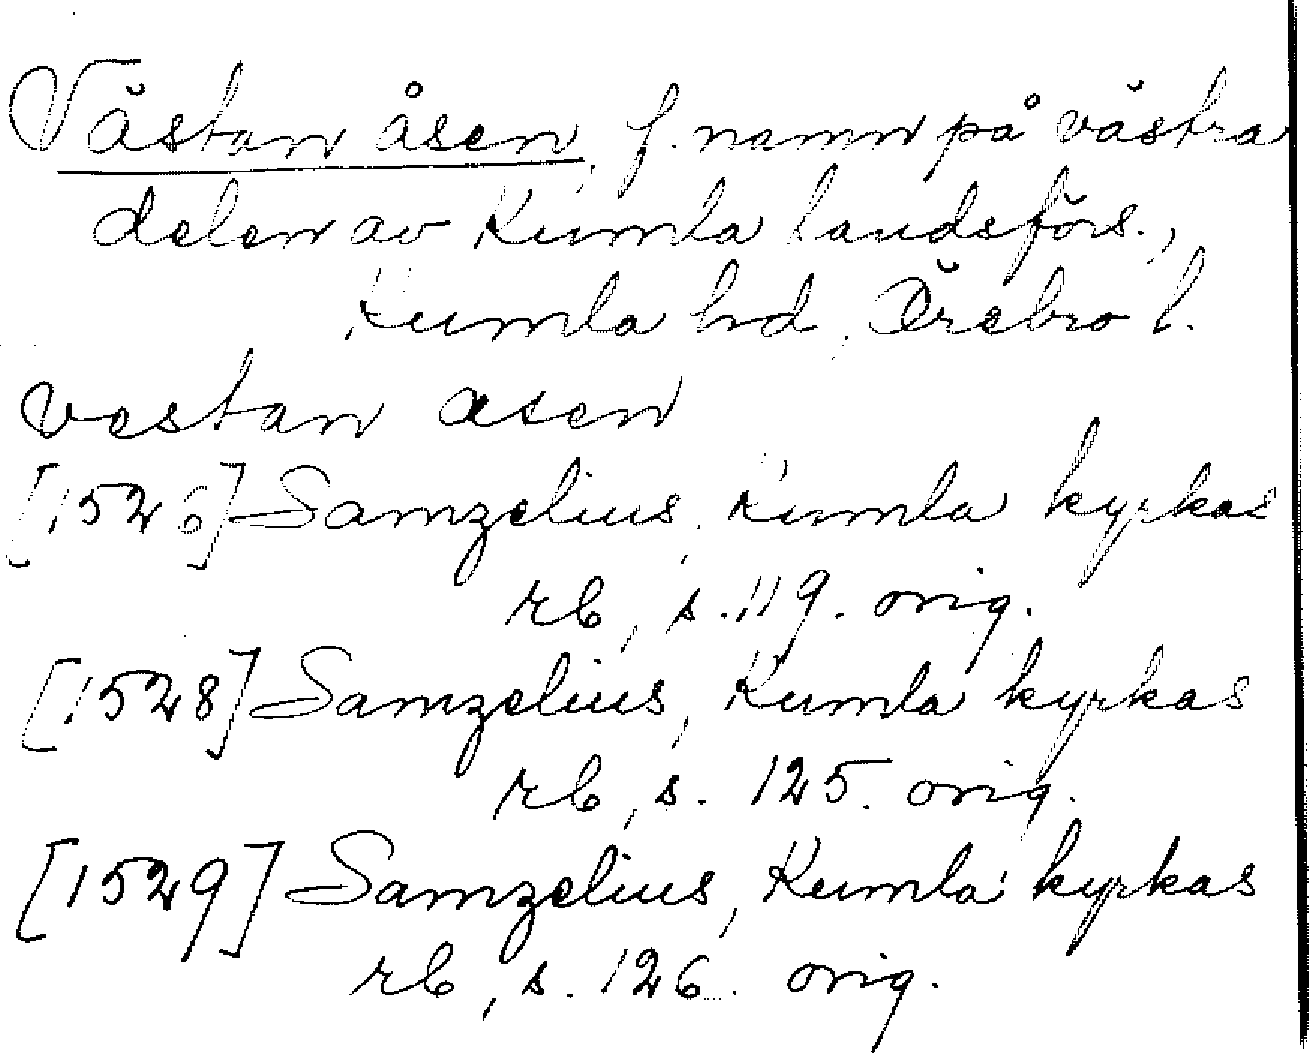 Västan åsen, f. namn på västra
delen av Kumla landsförs.,
Kumla hd, Örebro l.
vestan asen
[1526] Samzelius, Kumla kyrkas
rb, s. 119. orig.
[1528] Samzelius, Kumla kyrkas
rb, s. 125. orig.
[1529] Samzelius, Kumla kyrkas
rb, s. 126. orig.